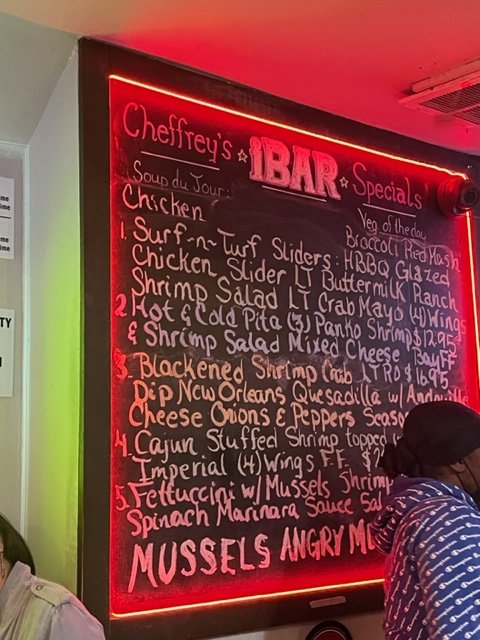 Cheffrey's ☆ iBAR ☆ Specials
Soup du Jour: Veg of the day
Chicken Broccoli Pied Mash
1. Surf-n-Turf Sliders: HBBQ Glazed
Chicken Slider LT Buttermilk Ranch
Shrimp Salad LT Crab Mayo (4) Wings
2. Hot & Cold Pita (3) Panko Shrimp $12.95
& Shrimp Salad Mixed Cheese Bay FF
3. Blackened Shrimp Crab LTRO $16.95
Dip New Orleans Quesadilla w/
Cheese Onions & Peppers
4. Cajun Stuffed Shrimp topped
Imperial (4) Wings F.F.
5. Fettuccini w/ Mussels Shrimp
Spinach Marinara Sauce
MUSSELS ANGRY
TY